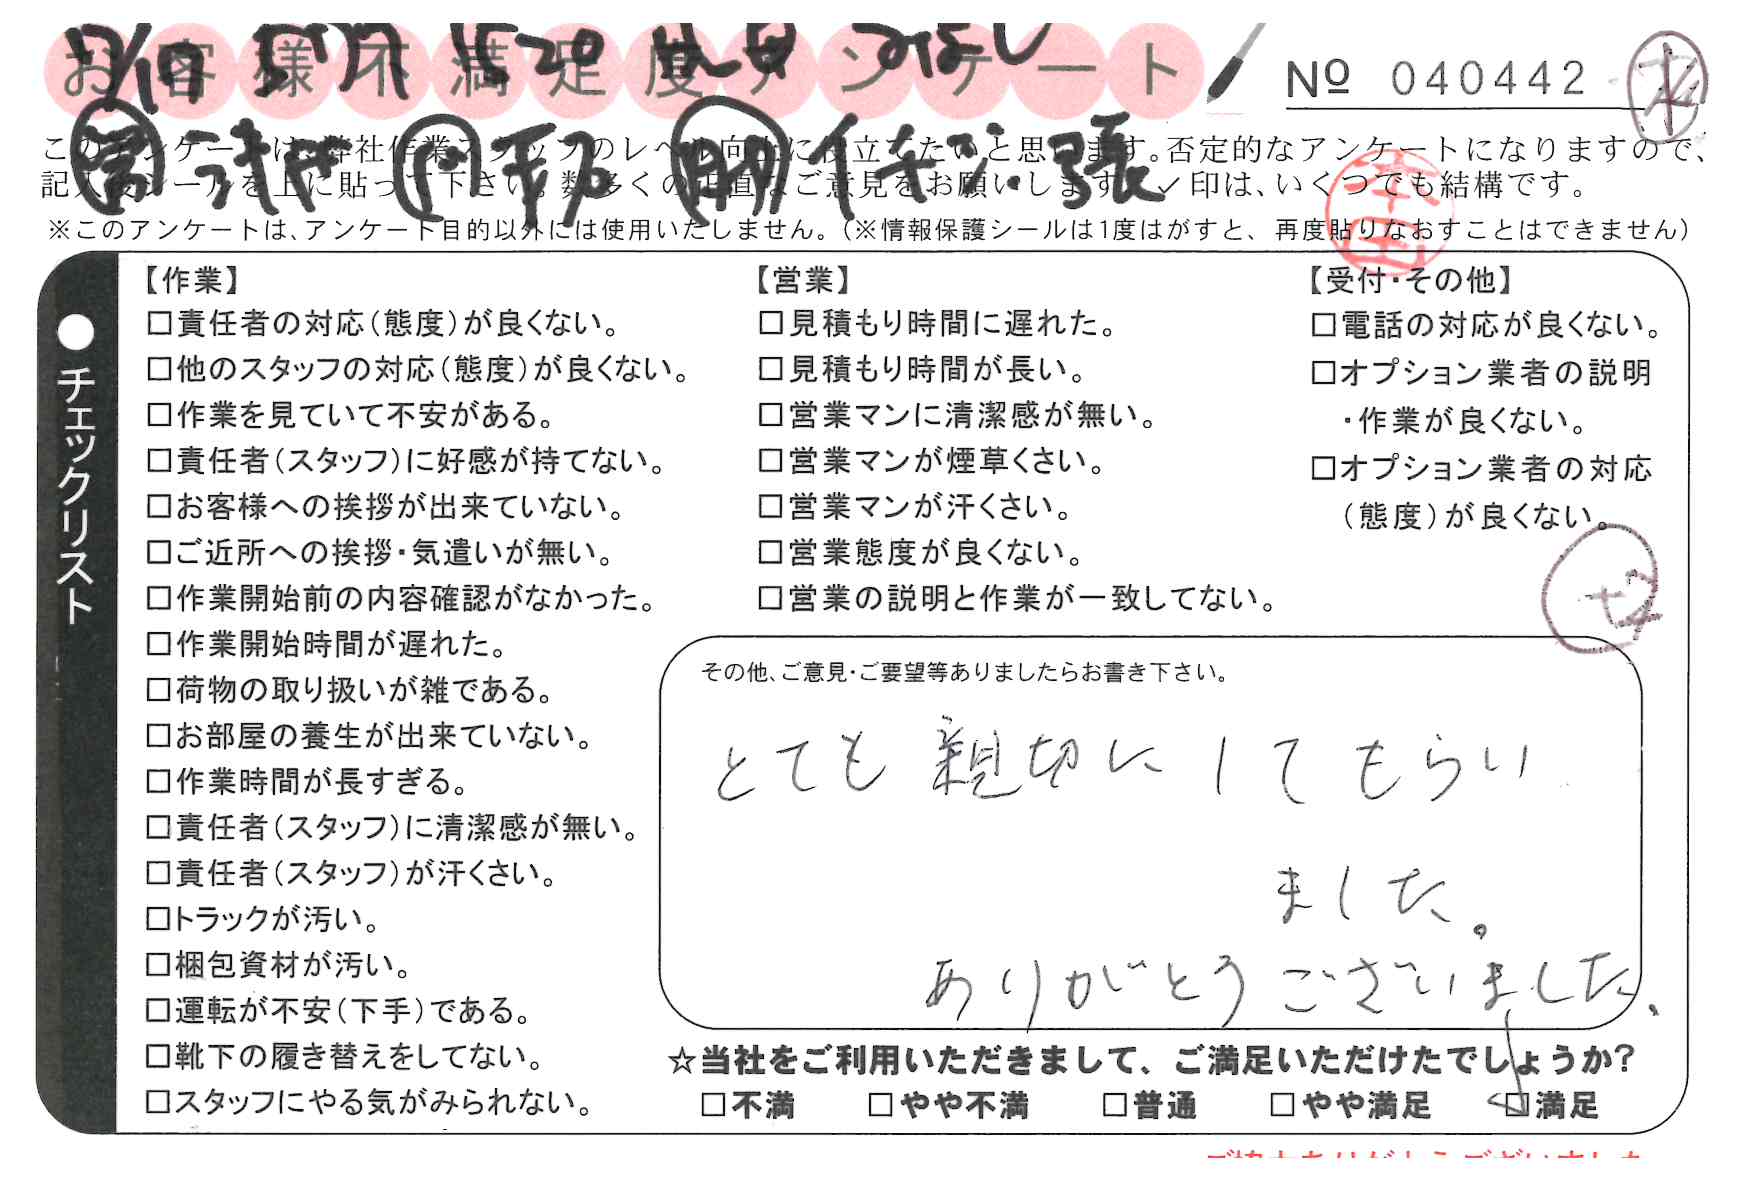 お客様不満足度アンケート
№ 040442
このアンケートは、弊社作業スタッフのレベル向上に役立てたいと思います。否定的なアンケートになりますので、
記入後シールを上に貼って下さい。数多くの正直なご意見をお願いします。✓印は、いくつでも結構です。
※このアンケートは、アンケート目的以外には使用いたしません。(※情報保護シールは1度はがすと、再度貼りなおすことはできません)
●チェックリスト
【作業】
□責任者の対応(態度)が良くない。
□他のスタッフの対応(態度)が良くない。
□作業を見ていて不安がある。
□責任者(スタッフ)に好感が持てない。
□お客様への挨拶が出来ていない。
□ご近所への挨拶・気遣いが無い。
□作業開始前の内容確認がなかった。
□作業開始時間が遅れた。
□荷物の取り扱いが雑である。
□お部屋の養生が出来ていない。
□作業時間が長すぎる。
□責任者(スタッフ)に清潔感が無い。
□責任者(スタッフ)が汗くさい。
□トラックが汚い。
□梱包資材が汚い。
□運転が不安(下手)である。
□靴下の履き替えをしてない。
□スタッフにやる気がみられない。
【営業】
□見積もり時間に遅れた。
□見積もり時間が長い。
□営業マンに清潔感が無い。
□営業マンが煙草くさい。
□営業マンが汗くさい。
□営業態度が良くない。
□営業の説明と作業が一致してない。
【受付・その他】
□電話の対応が良くない。
□オプション業者の説明
・作業が良くない。
□オプション業者の対応
(態度)が良くない。
その他、ご意見・ご要望等ありましたらお書き下さい。
とても親切にしてもらい
ました。
ありがとうございました。
☆当社をご利用いただきまして、ご満足いただけたでしょうか?
□不満 □やや不満 □普通 □やや満足 □満足
ご協力ありがとうございました